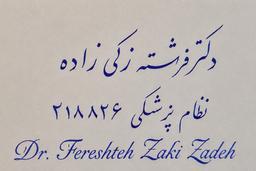 دکتر فرشته زکی زاده
نظام پزشکی ۲۱۸۸۲۶
Dr. Fereshteh Zaki Zadeh